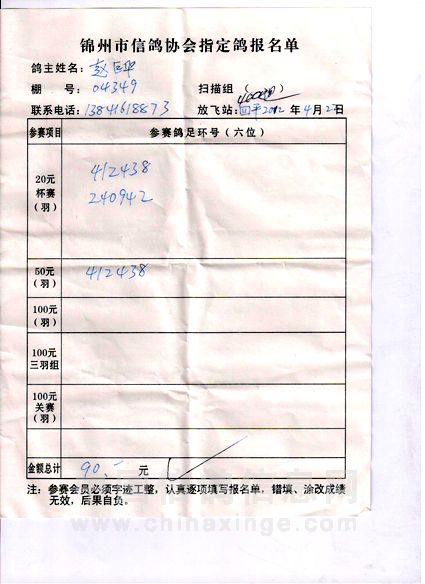 锦州市信鸽协会指定鸽报名单
鸽主姓名：赵
棚 号：04349 扫描组
联系电话：13841618873 放飞站：四平2012年4月27日
参赛项目 参赛鸽足环号（六位）
20元
杯赛
（羽）
412438
240942
50元
（羽）
412438
100元
（羽）
100元
三羽组
100元
关赛
（羽）
金额总计 90.— 元
注：参赛会员必须字迹工整，认真逐项填写报名单，错填、涂改成绩
无效，后果自负。
www.chinaxinge.com